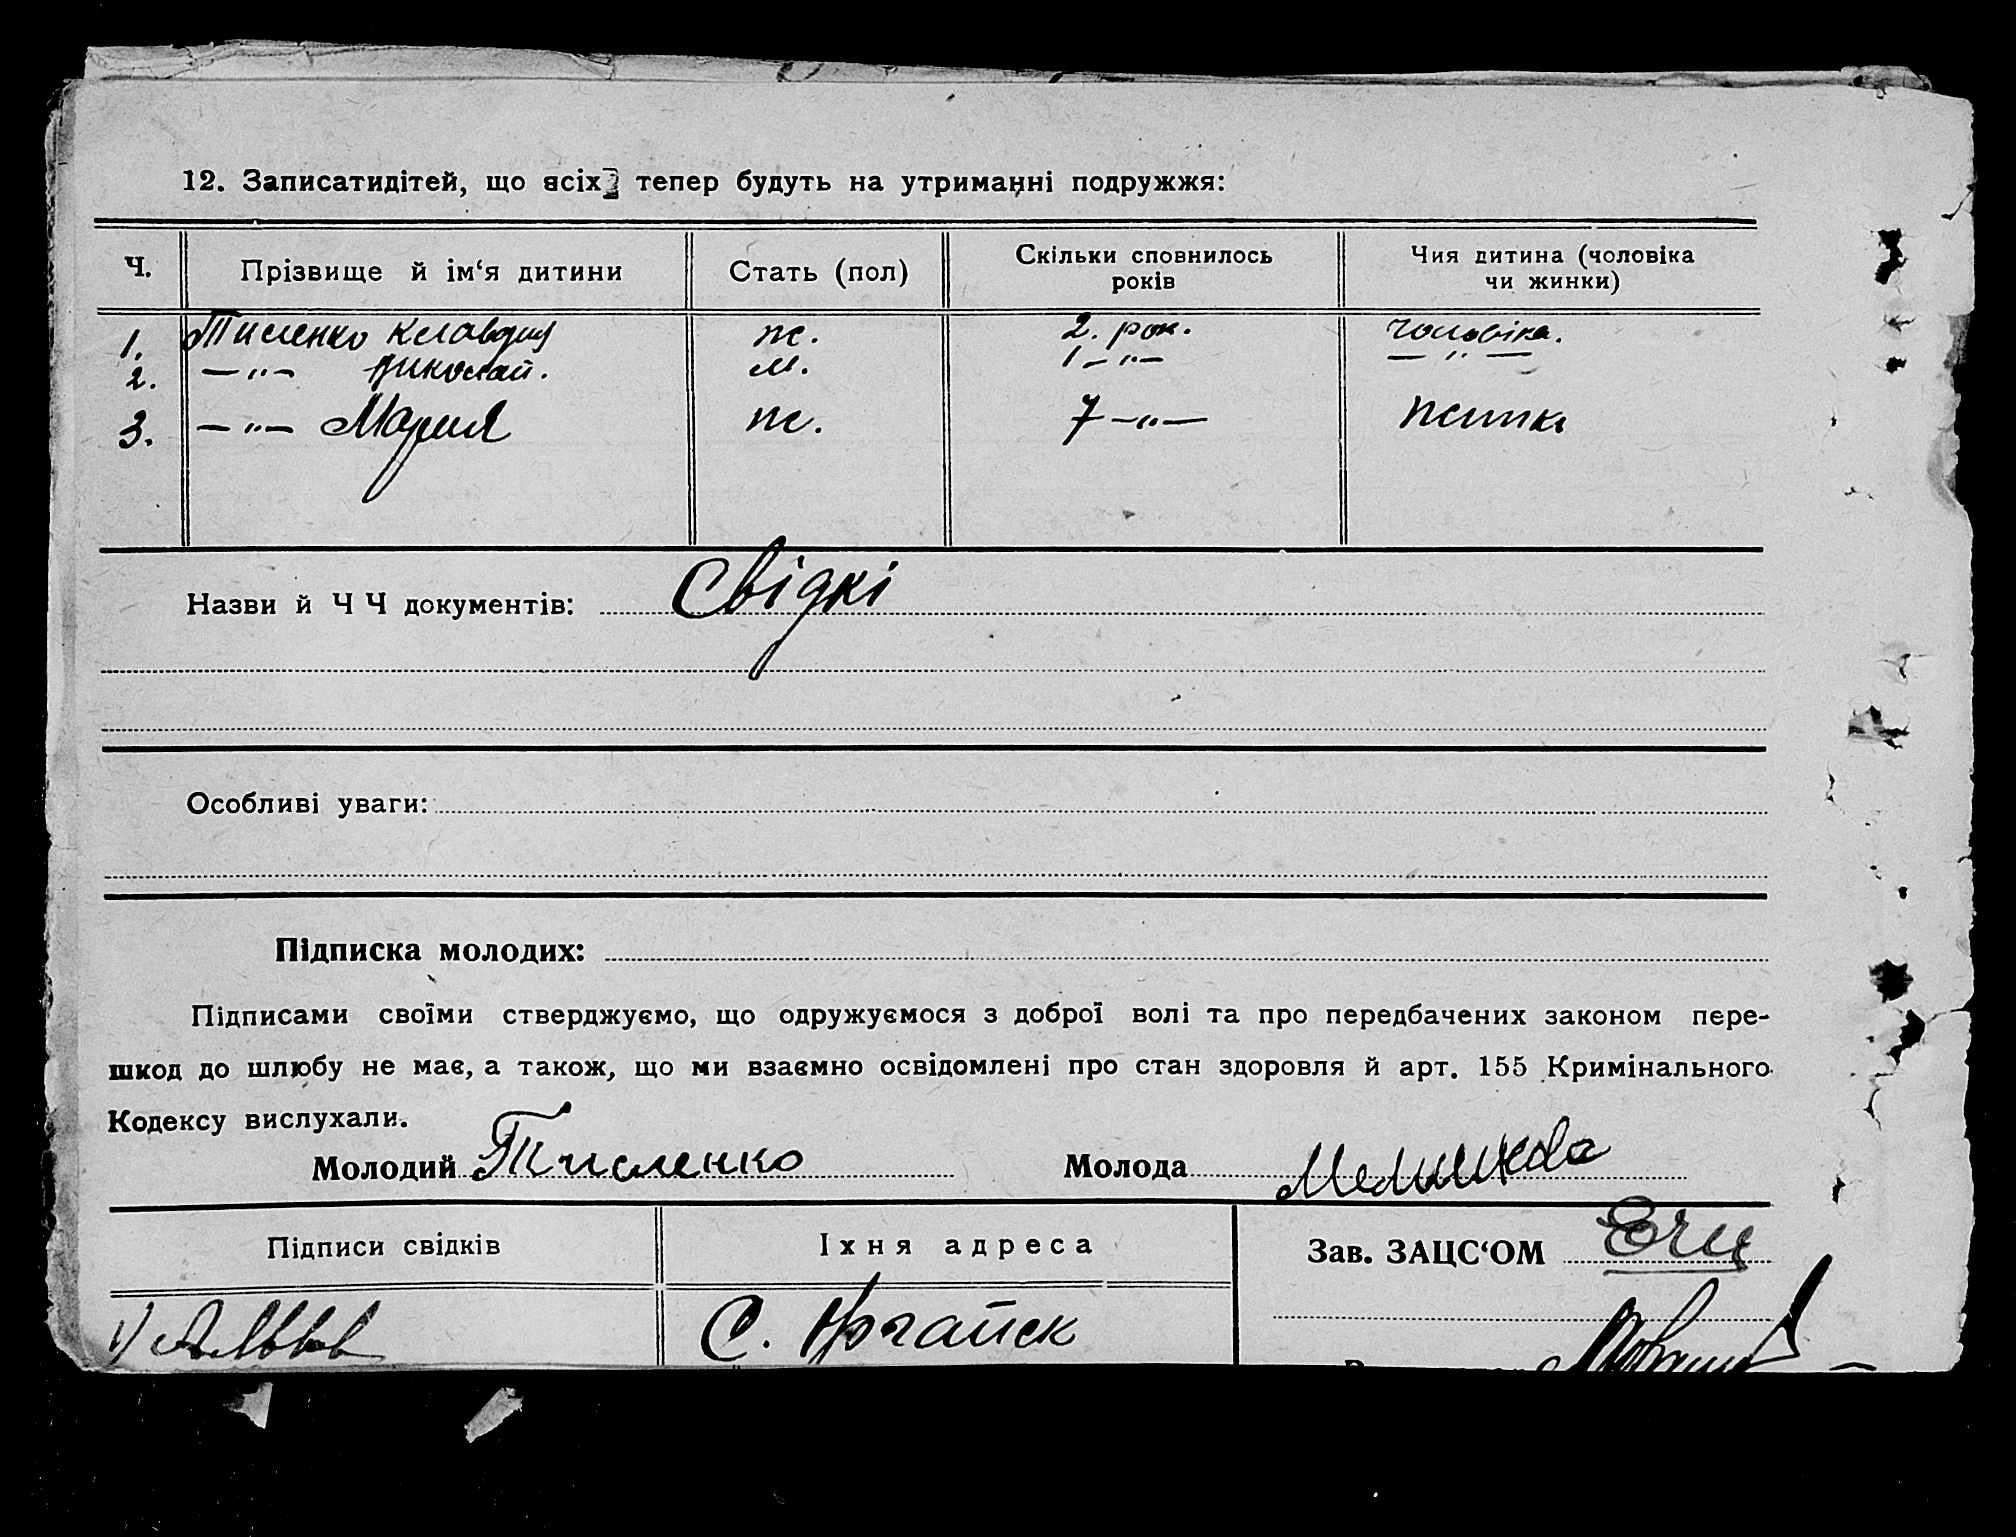 12. Записатидітей, що всіх тепер будуть на утриманні подружжя:
Ч. Прізвище й ім‘я дитини Стать (пол) Скільки сповнилось років Чия дитина (чоловіка чи жинки)
1. Тисленко Клавдия ж. 2. рок. чоловіка.
2. — " — Николай. м. 1 — " — — " —
3. — " — Мария ж. 7 — " — жинки
Назви й Ч Ч документів: Свідкі
Особливі уваги:
Підписка молодих:
Підписами своїми стверджуємо, що одружуємося з доброї волі та про передбачених законом пере-
шкод до шлюбу не має, а також, що ми взаємно освідомлені про стан здоровля й арт. 155 Кримінального
Кодексу вислухали.
Молодий Тисленко Молода
Підписи свідків Іхня адреса Зав. ЗАЦС‘ОМ
1) С. Ногайск